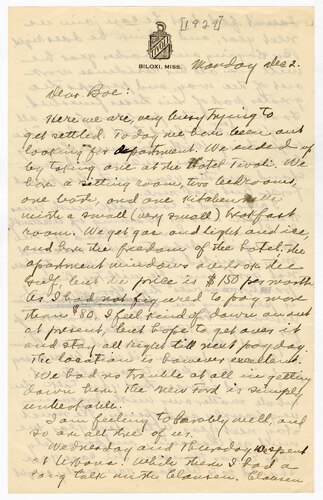 [1929]
BILOXI, MISS.
Monday Dec 2.
Dear Boe:
Here we are, very busy trying to
get settled. Today we have been out
looking for apartment. We ended up
by taking one at the Hotel Tivoli. We
have a setting room, two bedrooms,
one bath, and one kitchenette
with a small (very small) breakfast
room. We get gas and light and ice
and have the freedom of the hotel, the
apartment windows out on the
gulf, but the price is $150 per month
As I had not figured to pay more
than $80, I feel kind of down an out
at present, but hope to get over it
and stay all right till next pay day.
The location is however excellent.
We had no trouble at all in getting
down here. The new Ford is simply
unbeatable.
I am feeling tolerably well, and
so are all the of us.
Wednesday and Thursday we spent
at Urbana. While there I had a
long talk with Clausen. Clausen